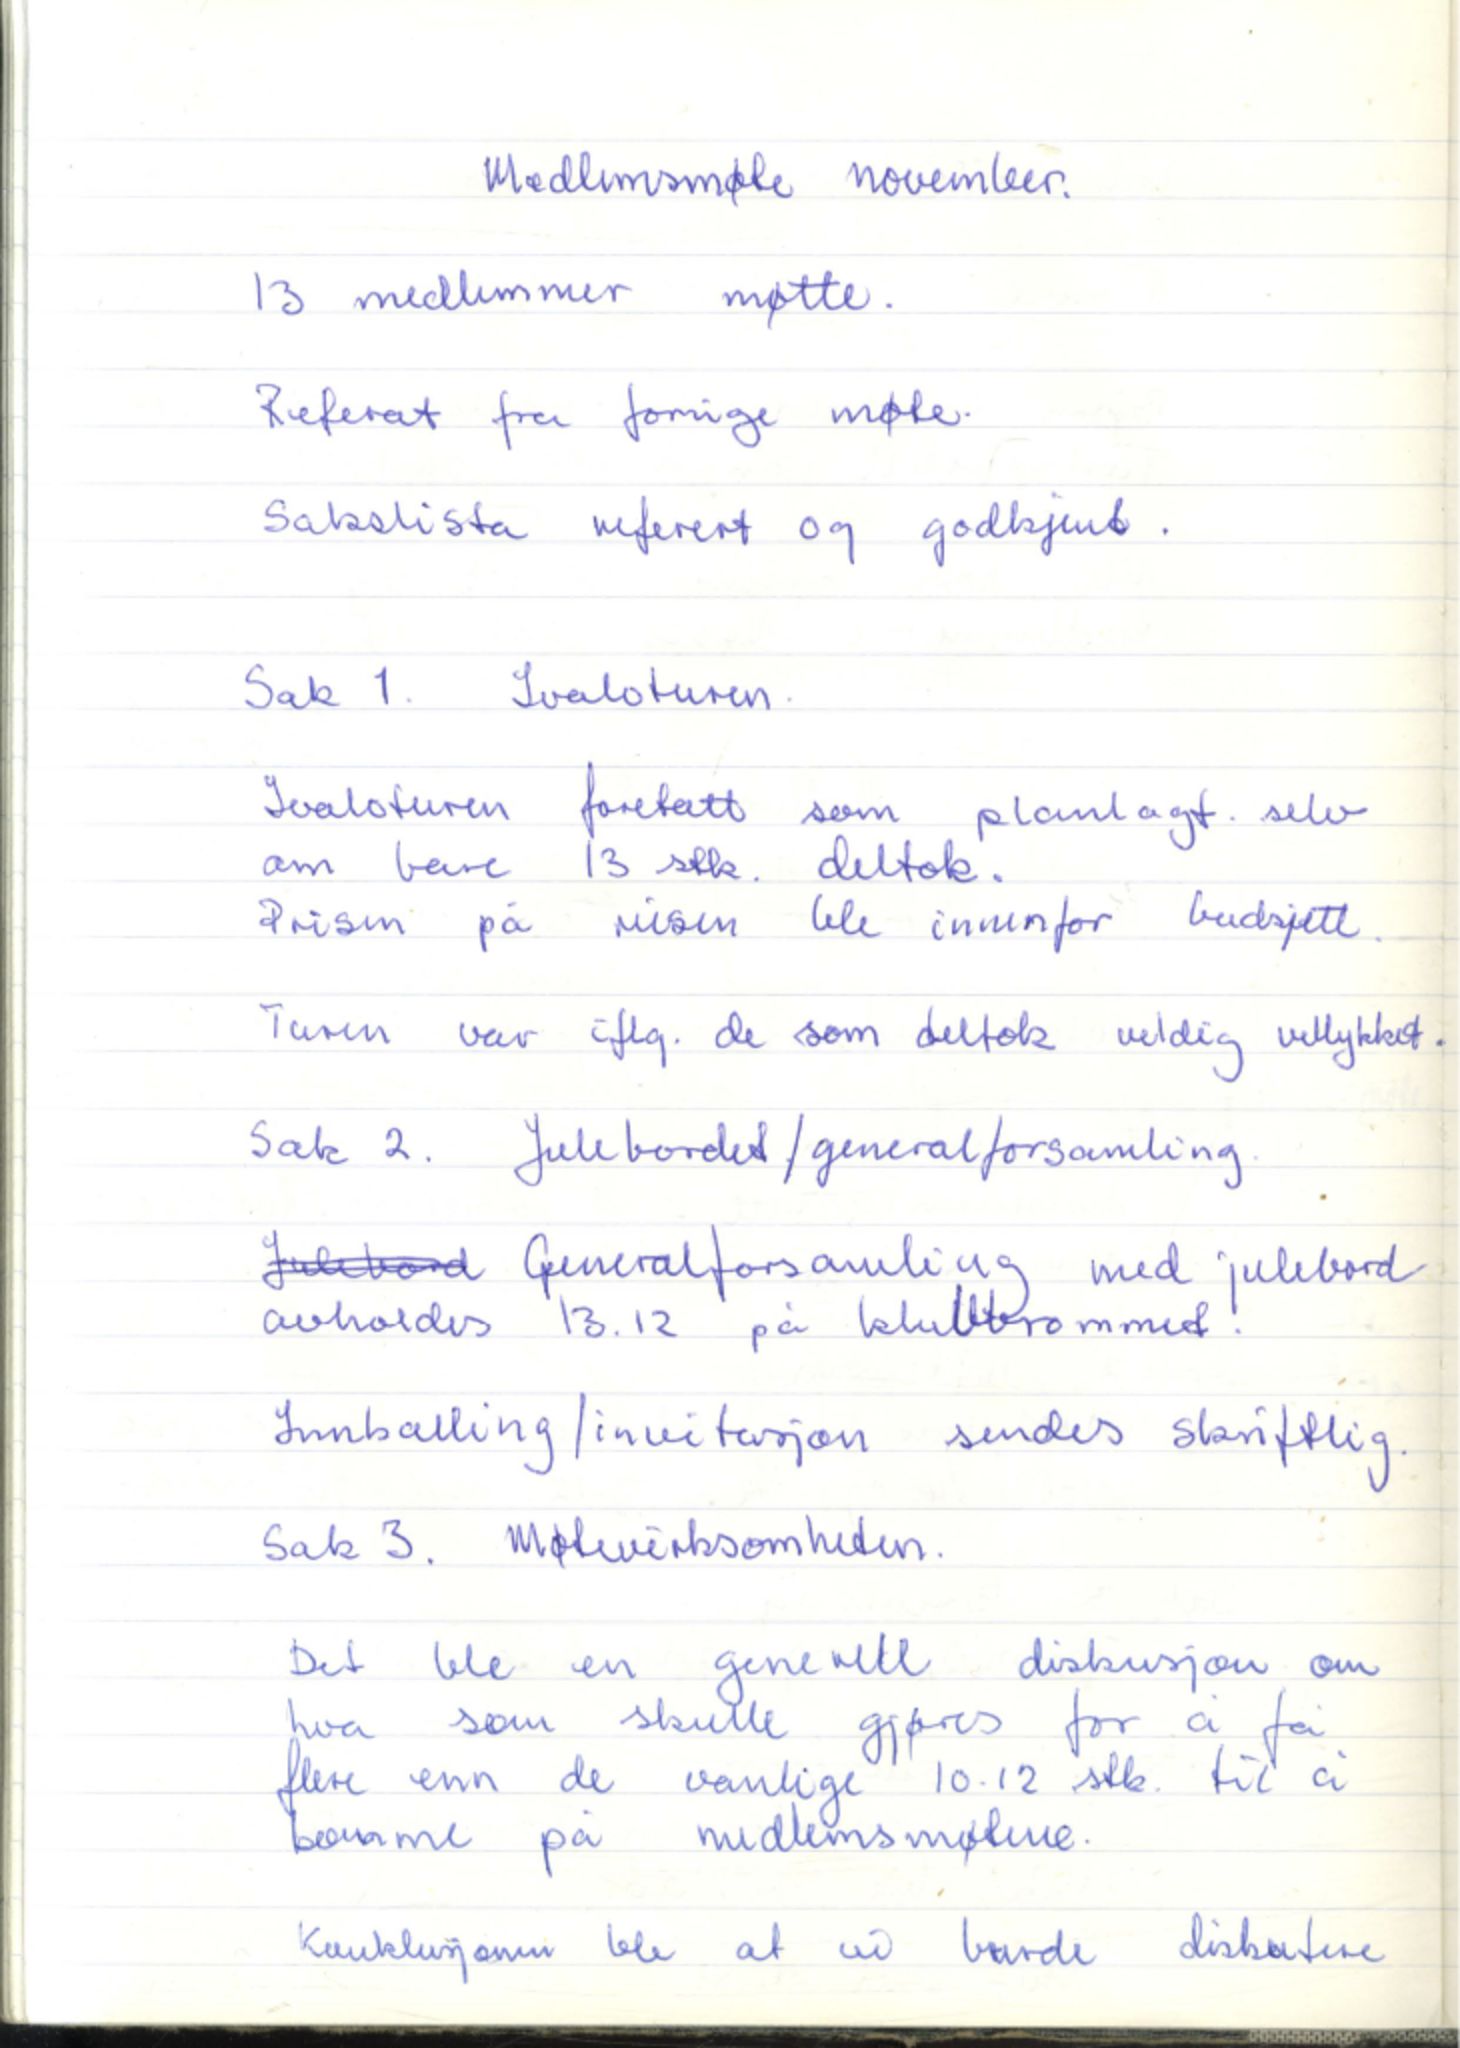 Medlemsmøte november.
13 medlemmer møtte.
Referat fra forrige møte.
Sakslista referert og godkjent.
Sak 1. Ivaloturen.
Ivaloturen foretatt som planlagt. selv
om bare 13 stk. deltok.
Prisen på reisen ble innenfor budsjett.
Turen var iflg. de som deltok veldig vellykket.
Sak 2. Julebordet/generalforsamling.
Julebord Generalforsamling med julebord
avholdes 13.12 på klubbrommet.
Innkalling/invitasjon sendes skriftlig.
Sak 3. Møtevirksomheten.
Det ble en generell diskusjon om
hva som skulle gjøres for å få
flere enn de vanlige 10-12 stk. til å
komme på medlemsmøtene.
Konklusjonen ble at vi burde diskutere